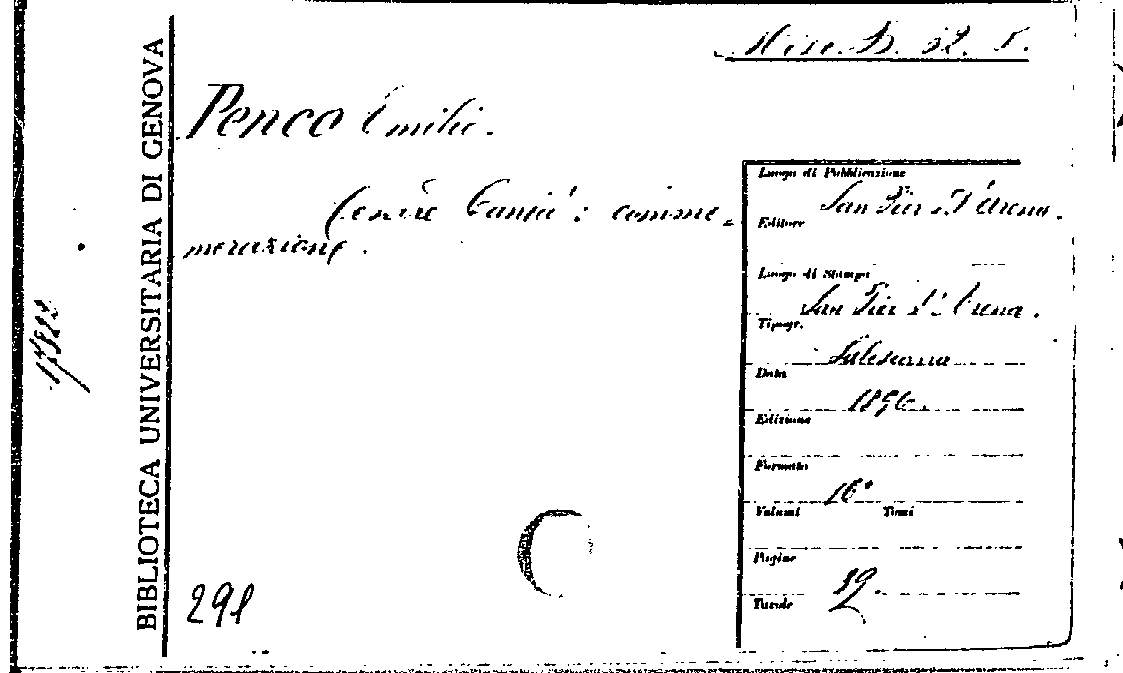 Misc. B. 32. 5.
BIBLIOTECA UNIVERSITARIA DI GENOVA
Penco Emilio.
Cesare Cantù: comme-
morazione.
Luogo di Pubblicazione
San Pier d'Arena.
Editore
Luogo di Stampa
San Pier d'Arena.
Tipogr.
Salesiana
Data
1896.
Edizione
Formato
16°
Volumi Tomi
Pagine
19.
Tavole
291